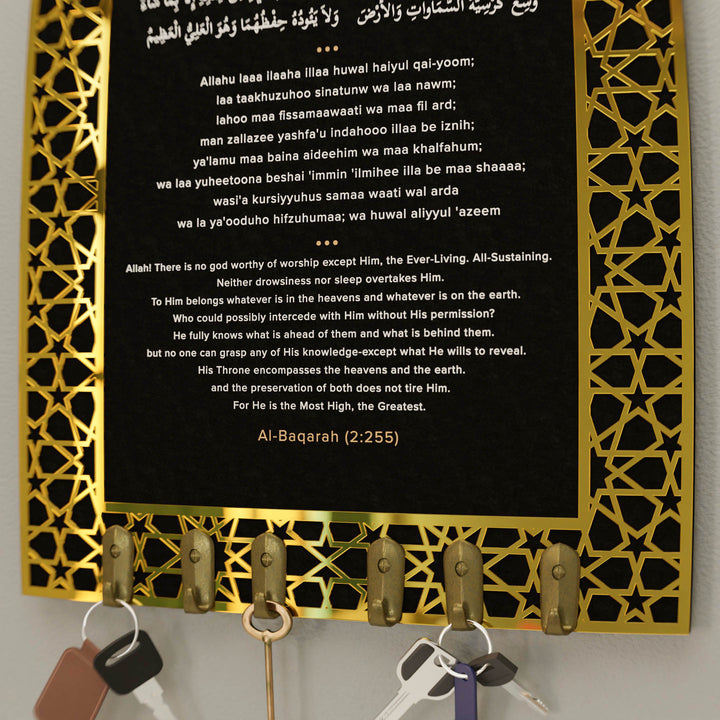 وَسِعَ كُرْسِيُّهُ السَّمَاوَاتِ وَالْأَرْضَ
وَلَا يَئُودُهُ حِفْظُهُمَا وَهُوَ الْعَلِيُّ الْعَظِيمُ
Allahu laaa ilaaha illaa huwal haiyul qai-yoom;
laa taakhuzuhoo sinatunw wa laa nawm;
lahoo maa fissamaawaati wa maa fil ard;
man zallazee yashfa'u indahooo illaa be iznih;
ya'lamu maa baina aideehim wa maa khalfahum;
wa laa yuheetoona beshai 'immin 'ilmihee illa be maa shaaaa;
wasi'a kursiyyuhus samaa waati wal arda
wa la ya'ooduho hifzuhumaa; wa huwal aliyyul 'azeem
Allah! There is no god worthy of worship except Him, the Ever-Living. All-Sustaining.
Neither drowsiness nor sleep overtakes Him.
To Him belongs whatever is in the heavens and whatever is on the earth.
Who could possibly intercede with Him without His permission?
He fully knows what is ahead of them and what is behind them.
but no one can grasp any of His knowledge-except what He wills to reveal.
His Throne encompasses the heavens and the earth.
and the preservation of both does not tire Him.
For He is the Most High, the Greatest.
Al-Baqarah (2:255)